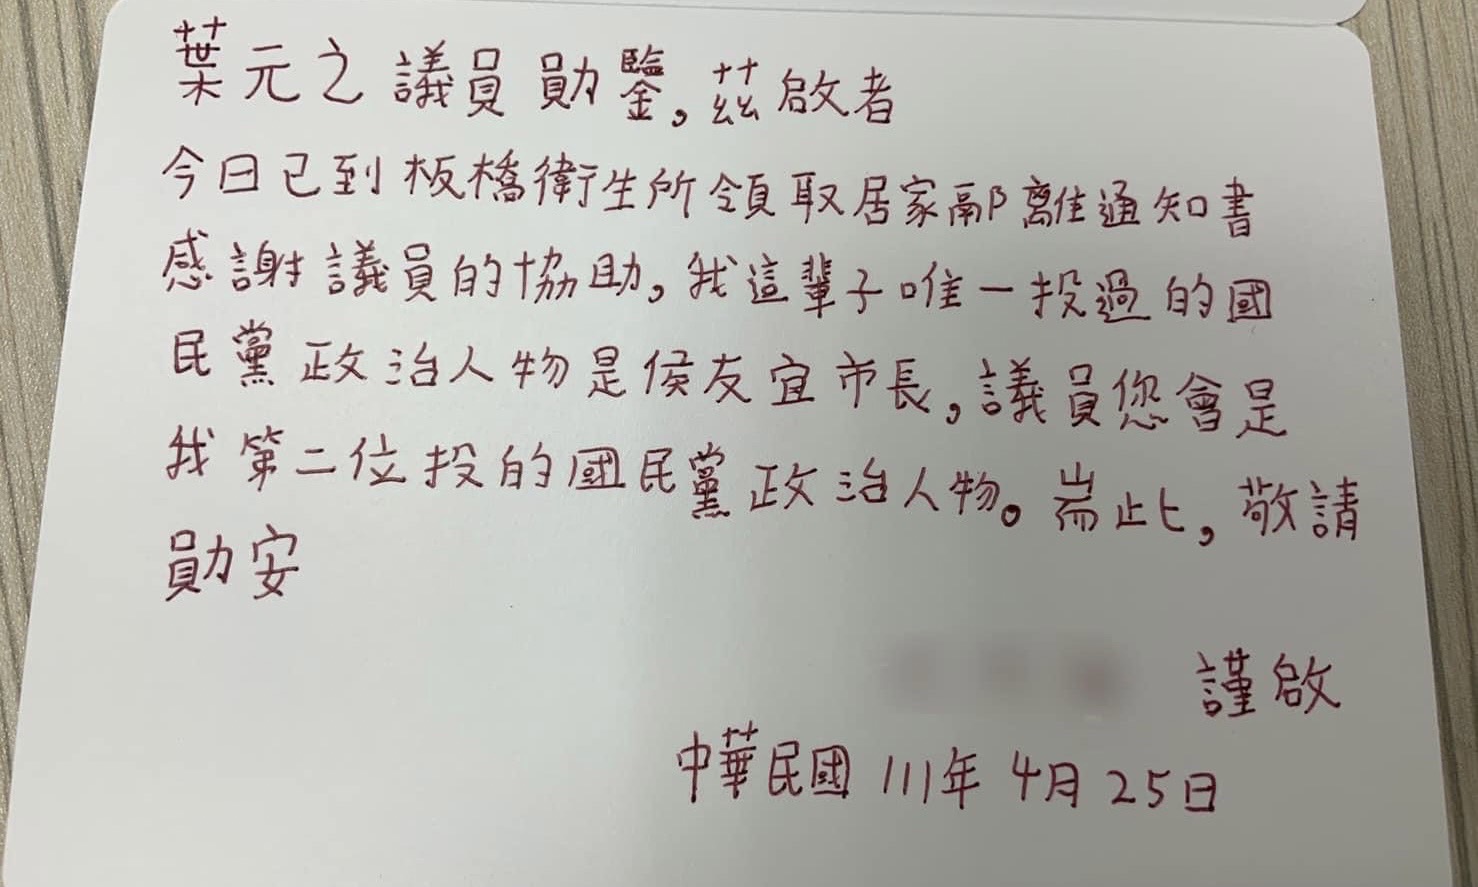 葉元之議員勛鑒，茲啟者
今日已到板橋衛生所領取居家隔離通知書
感謝議員的協助，我這輩子唯一投過的國
民黨政治人物是侯友宜市長，議員您會是
我第二位投的國民黨政治人物。耑此，敬請
勛安
謹啟
中華民國111年4月25日